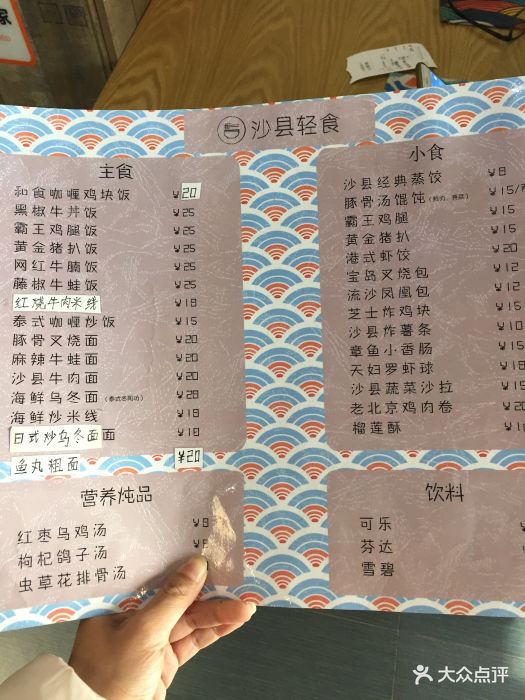 家
沙县轻食
主食
和食咖喱鸡块饭 ¥20
黑椒牛丼饭 ¥25
霸王鸡腿饭 ¥25
黄金猪扒饭 ¥25
网红牛腩饭 ¥25
藤椒牛蛙饭 ¥25
红烧牛肉米线 ¥18
泰式咖喱炒饭 ¥15
豚骨叉烧面 ¥20
麻辣牛蛙面 ¥20
沙县牛肉面 ¥20
海鲜乌冬面 ¥28
海鲜炒米线 ¥18
日式炒乌冬面面 ¥18
鱼丸粗面 ¥20
营养炖品
红枣乌鸡汤 ¥8
枸杞鸽子汤
虫草花排骨汤
小食
沙县经典蒸饺 ¥8
豚骨汤馄饨 ¥15/
霸王鸡腿 ¥15
黄金猪扒 ¥15
港式虾饺 ¥12
宝岛叉烧包 ¥12
流沙凤凰包 ¥12
芝士炸鸡块 ¥15
沙县炸薯条 ¥10
章鱼小香肠 ¥15
天妇罗虾球 ¥15
沙县蔬菜沙拉 ¥15
老北京鸡肉卷
榴莲酥
饮料
可乐
芬达
雪碧
大众点评